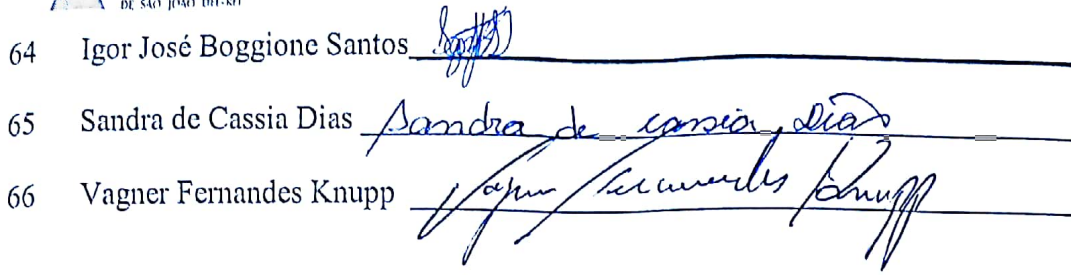 DE SÃO JOÃO DEL-REI
64 Igor José Boggione Santos
65 Sandra de Cassia Dias Sandra de cassia Dias
66 Vagner Fernandes Knupp Vagner Fernandes Knupp